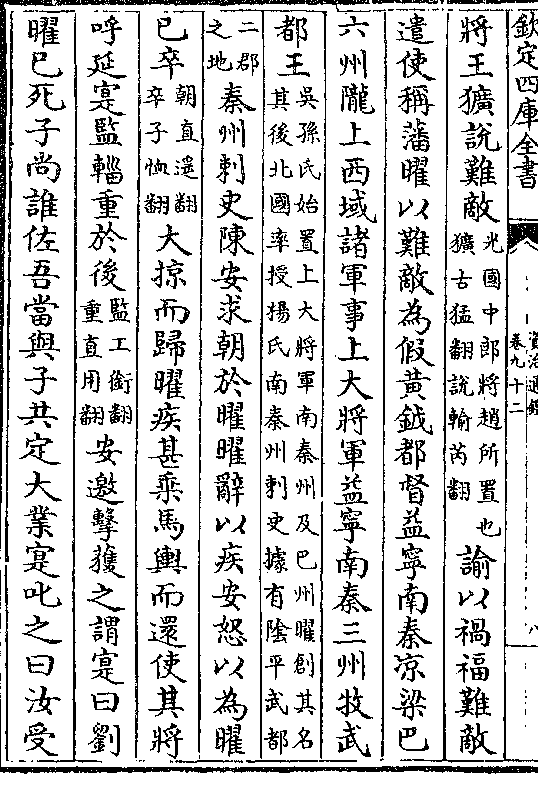 欽定四庫全書
資治通鑑
卷九十二
八
將王獷說難敵光國中郎將趙所置也獷古猛翻說輸芮翻諭以禍福難敵
遣使稱藩曜以難敵為假黃鉞都督益寧南秦凉梁巴
六州隴上西域諸軍事上大將軍益寧南秦三州牧武
都王吳孫氏始置上大將軍南秦州及巴州曜創其名其後北國率授揚氏南秦州刺史據有隂平武都
二郡之地秦州刺史陳安求朝於曜曜辭以疾安怒以為曜
已卒朝直遥翻卒子恤翻大掠而歸曜疾甚乘馬輿而還使其將
呼延寔監輜重於後監工銜翻重直用翻安邀擊獲之謂寔曰劉
曜已死子尚誰佐吾當與子共定大業寔叱之曰汝受